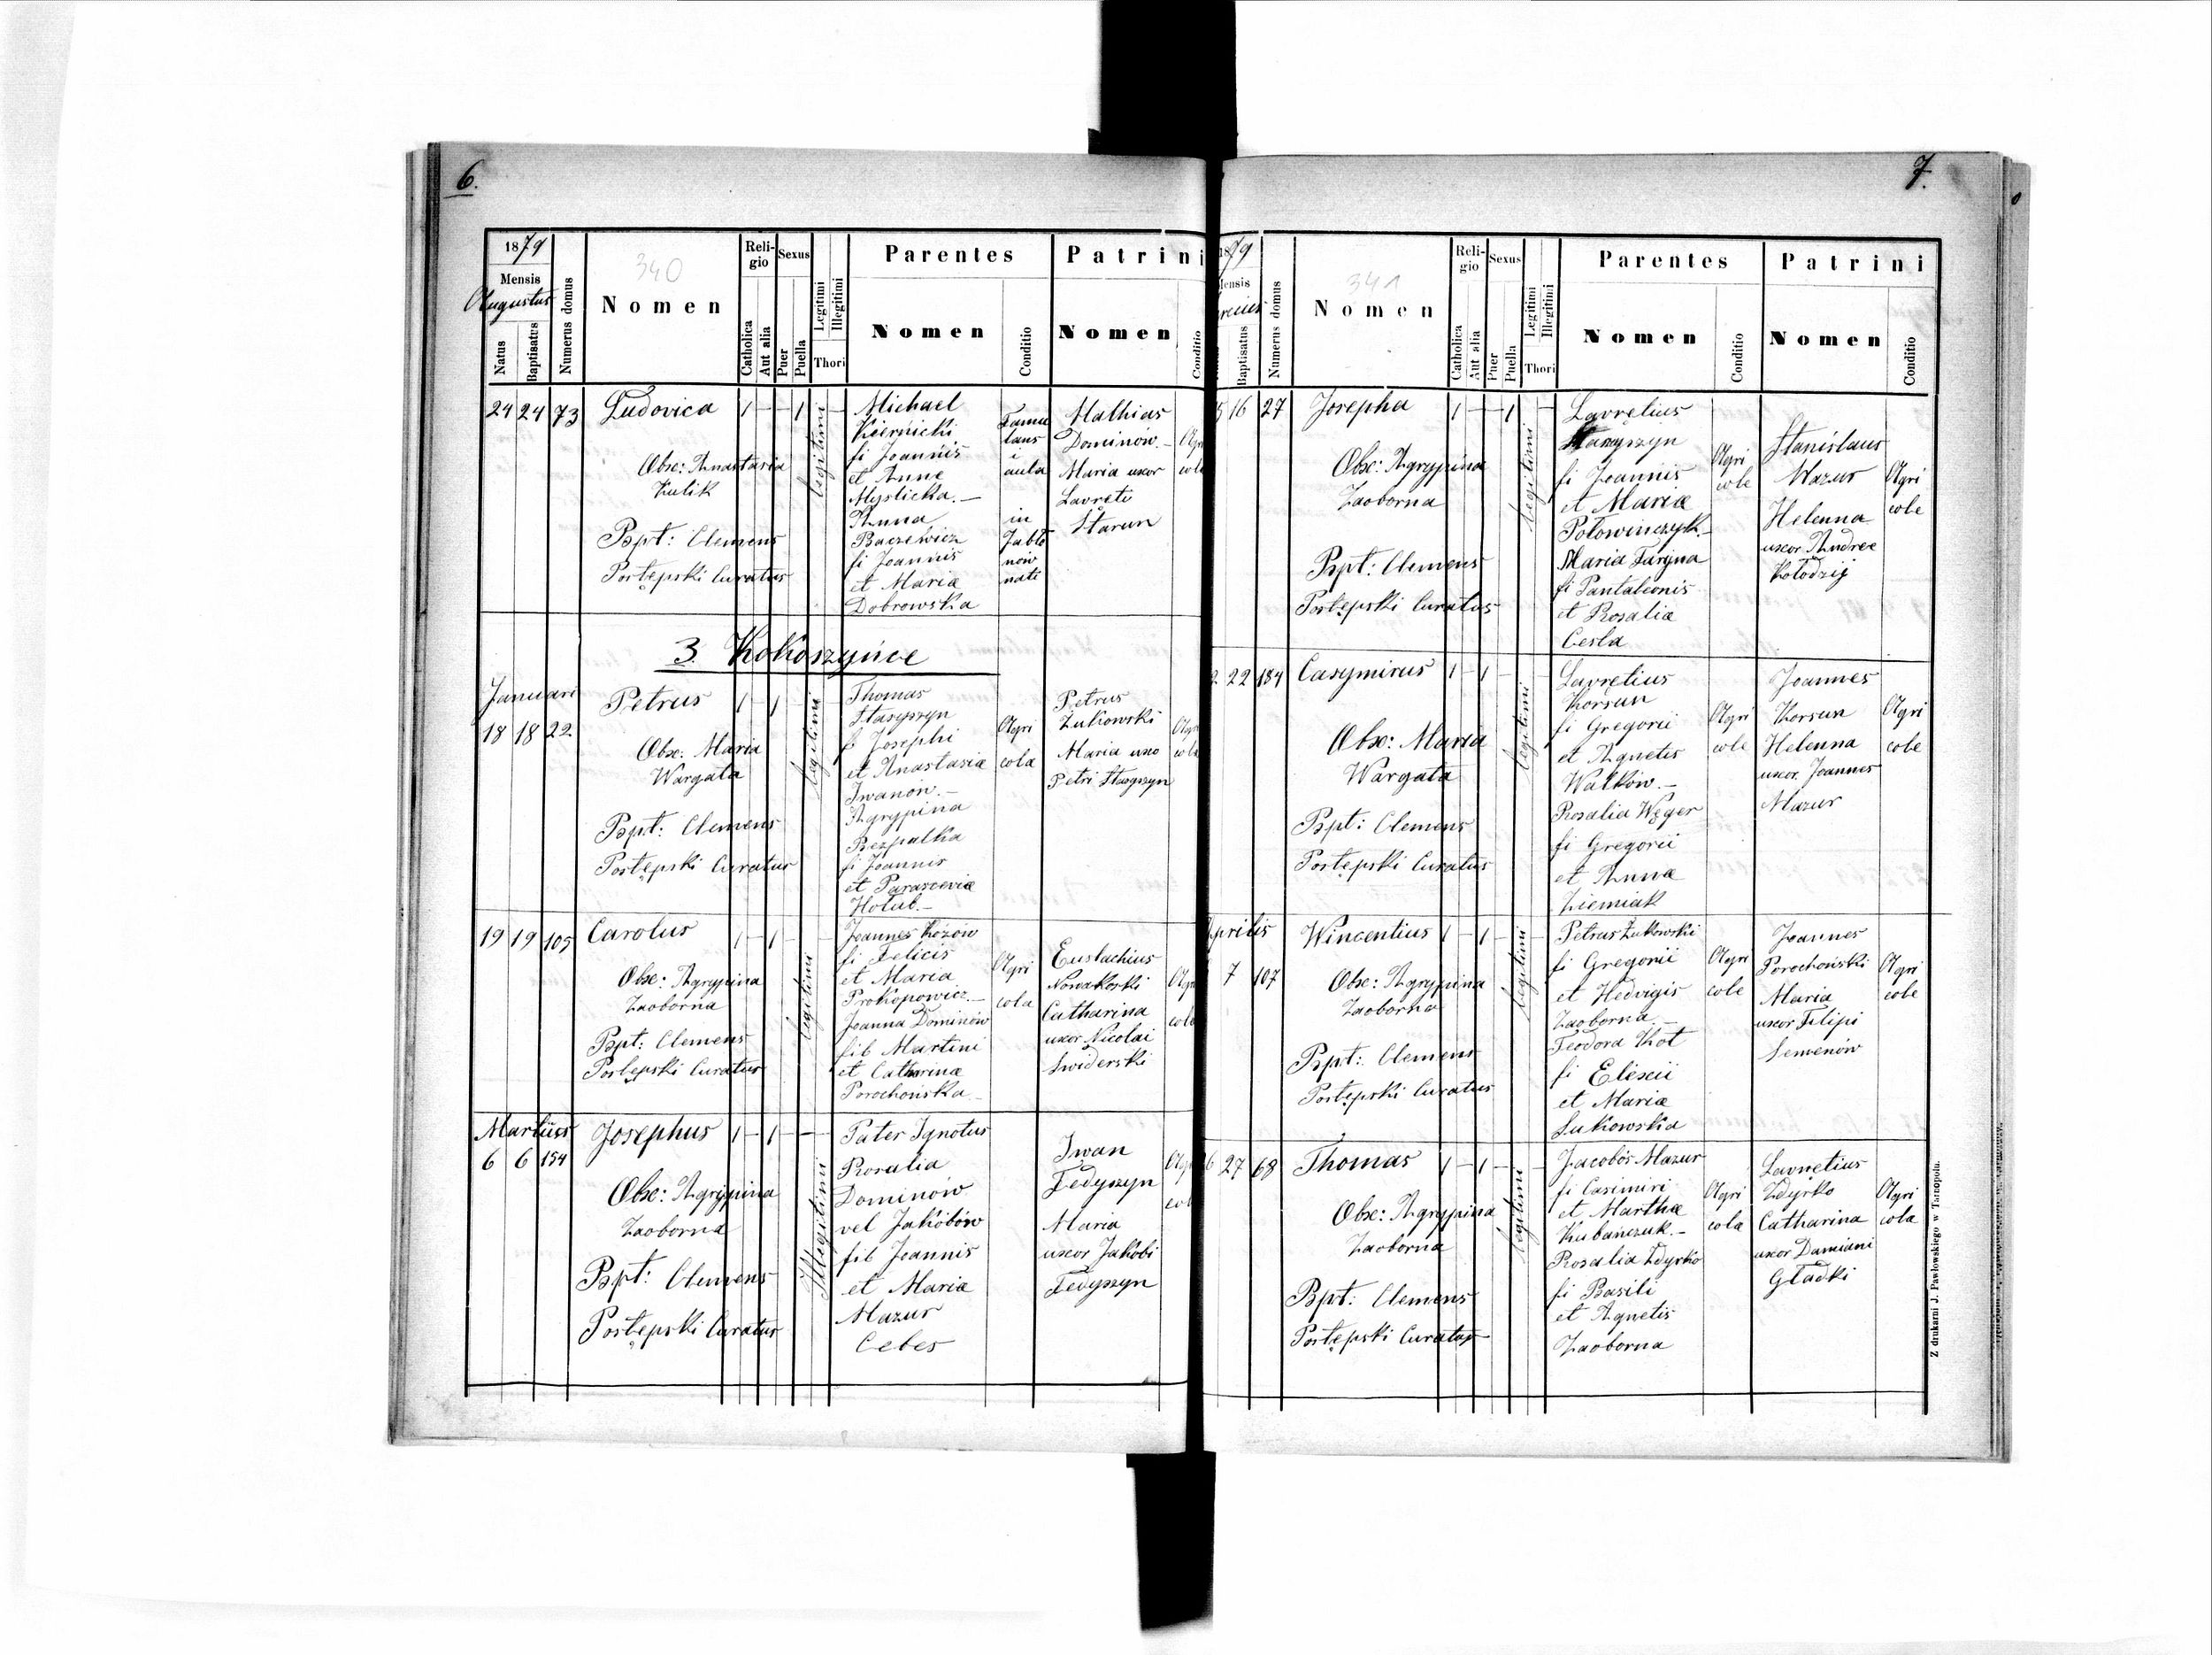 6.
1879
Mensis
Augustus
Natus
Baptisatus
Numerus domus
340
Nomen
Religio
Catholica
Aut alia
Sexus
Puer
Puella
Legitimi
Illegitimi
Thori
Parentes
Nomen
Conditio
Patrini
Nomen
Conditio
24 24 73
Ludovica
Obsc: Anastasia
Kulik
Bpt: Clemens
Postępski Curatus
legitimi
Michael
Kiernicki
fi Joannis
et Anne
Myslicka.—
Anna
Baczewicz
fi Joannis
et Maria
Dobrowska
Famu
lans
i
aula
in
Jabło
nów
nati
Mathias
Dominów.—
Maria uxor
Lavreti
Starun
3 Kokoszyńce
Januari
18 18 22
Petrus
Obsc: Maria
Wargata
Bpt: Clemens
Postępski Curatus
legitimi
Thomas
Stasyszyn
fi Josephi
et Anastasiæ
Iwanów.—
Agrypina
Bezpalka
fi Joannis
et Parasceviæ
Hołub.—
Agri
cola
Petrus
Żukowski
Maria uxo
Petri Stasyszyn
19 19 105
Carolus
Obsc: Agrypina
Zaoborna
Bpt: Clemens
Postępski Curatus
legitimi
Joannes Kozów
fi Felicis
et Maria
Prokopowicz.—
Joanna Dominów
fib Martini
et Catharinæ
Porochońska.—
Agri
cola
Eustachius
Nowakoski
Catharina
uxor Nicolai
Swiderski
Martius
6 6 154
Josephus
Obsc: Agrypina
Zaoborna
Bpt: Clemens
Postępski Curatus
Illegitimi
Pater Ignotus
Rosalia
Dominów
vel Jakóbów
fib Joannis
et Mariæ
Mazur
Cebes
Iwan
Fedyszyn
Maria
uxor Jakóbi
Fedyszyn
7.
Mensis
Baptisatus
Numerus domus
341
Nomen
Religio
Catholica
Aut alia
Sexus
Puer
Puella
Legitimi
Illegitimi
Thori
Parentes
Nomen
Conditio
Patrini
Nomen
Conditio
5 16 27
Josepha
Obsc: Agrypina
Zaoborna
Bpt: Clemens
Postępski Curatus
legitimi
Lavretius
Stasyszyn
fi Joannis
et Mariæ
Połowinczyk.—
Maria Faryna
fi Pantaleonis
et Rosaliæ
Cesla
Agri
cole
Stanislaus
Mazur
Helenna
uxor Andree
Kołodzij
Agri
cole
2 22 184
Casymirus
Obsc: Maria
Wargata
Bpt: Clemens
Postępski Curatus
legitimi
Lavretius
Korsun
fi Gregorii
et Agnetis
Walków.—
Rosalia Węger
fi Gregorii
et Annæ
Ziemiak
Agri
cole
Joannes
Korsun
Helenna
uxor Joannes
Mazur
Agri
cole
Aprilis
7 107
Wincentius
Obsc: Agrypina
Zaoborna
Bpt: Clemens
Postępski Curatus
legitimi
Petrus Żukowski
fi Gregorii
et Hedvigis
Zaoborna.—
Teodora Kot
fi Eliseii
et Mariæ
Sukowska
Agri
cole
Joannes
Porochoński
Maria
uxor Filipi
Semenów
Agri
cole
6 27 68
Thomas
Obsc: Agrypina
Zaoborna
Bpt: Clemens
Postępski Curatus
legitimi
Jacobós Mazur
fi Casimiri
et Marthæ
Kubańczuk.—
Rosalia Zdyrko
fi Basili
et Agnetis
Zaoborna
Agri
cola
Lavretius
Zdyrko
Catharina
uxor Damiani
Gładki
Agri
cola
Z drukarni J. Pawłowskiego w Tarnopolu.